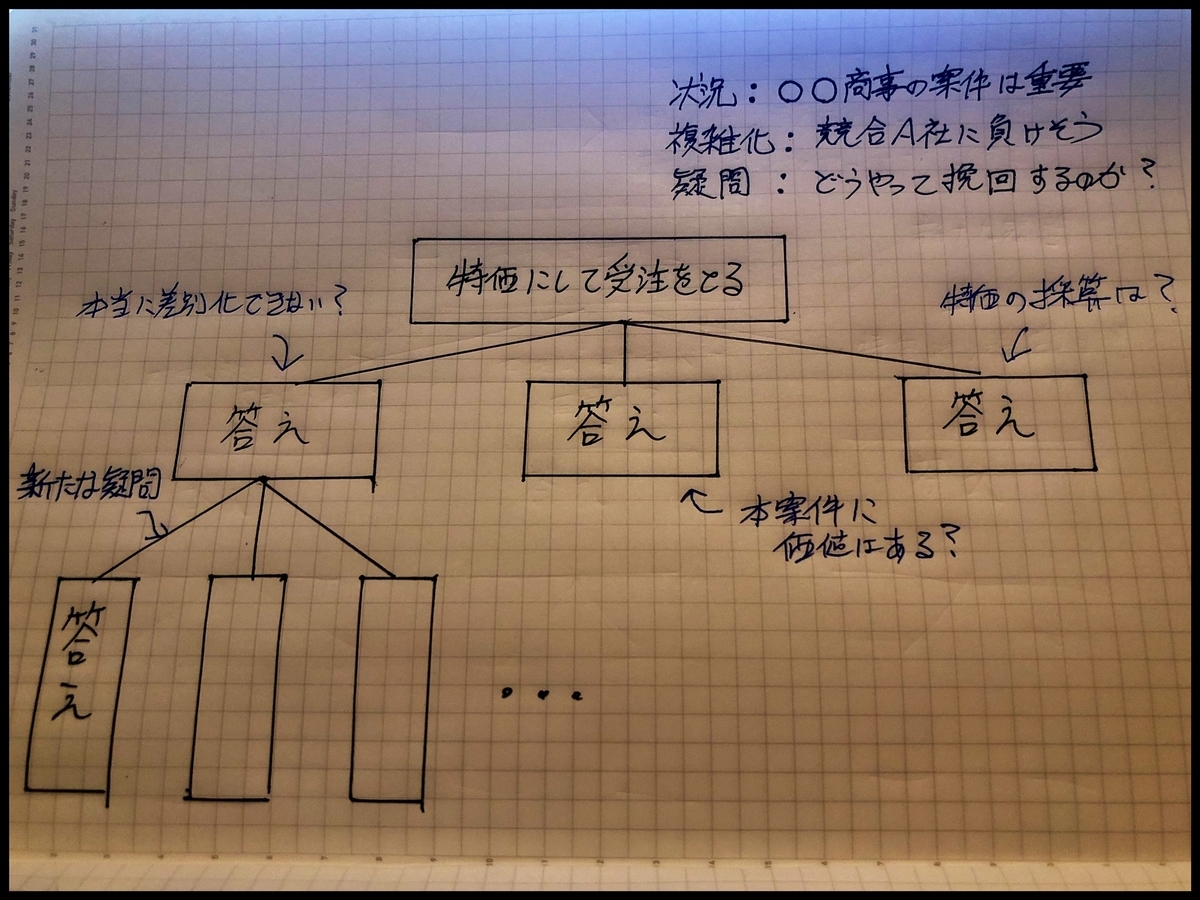 状況：〇〇商事の案件は重要
複雑化：競合A社に負けそう
疑問：どうやって挽回するのか？
特価にして受注をとる
本当に差別化できない？
特価の採算は？
答え
答え
答え
新たな疑問
本案件に
価値はある？
答え
・・・